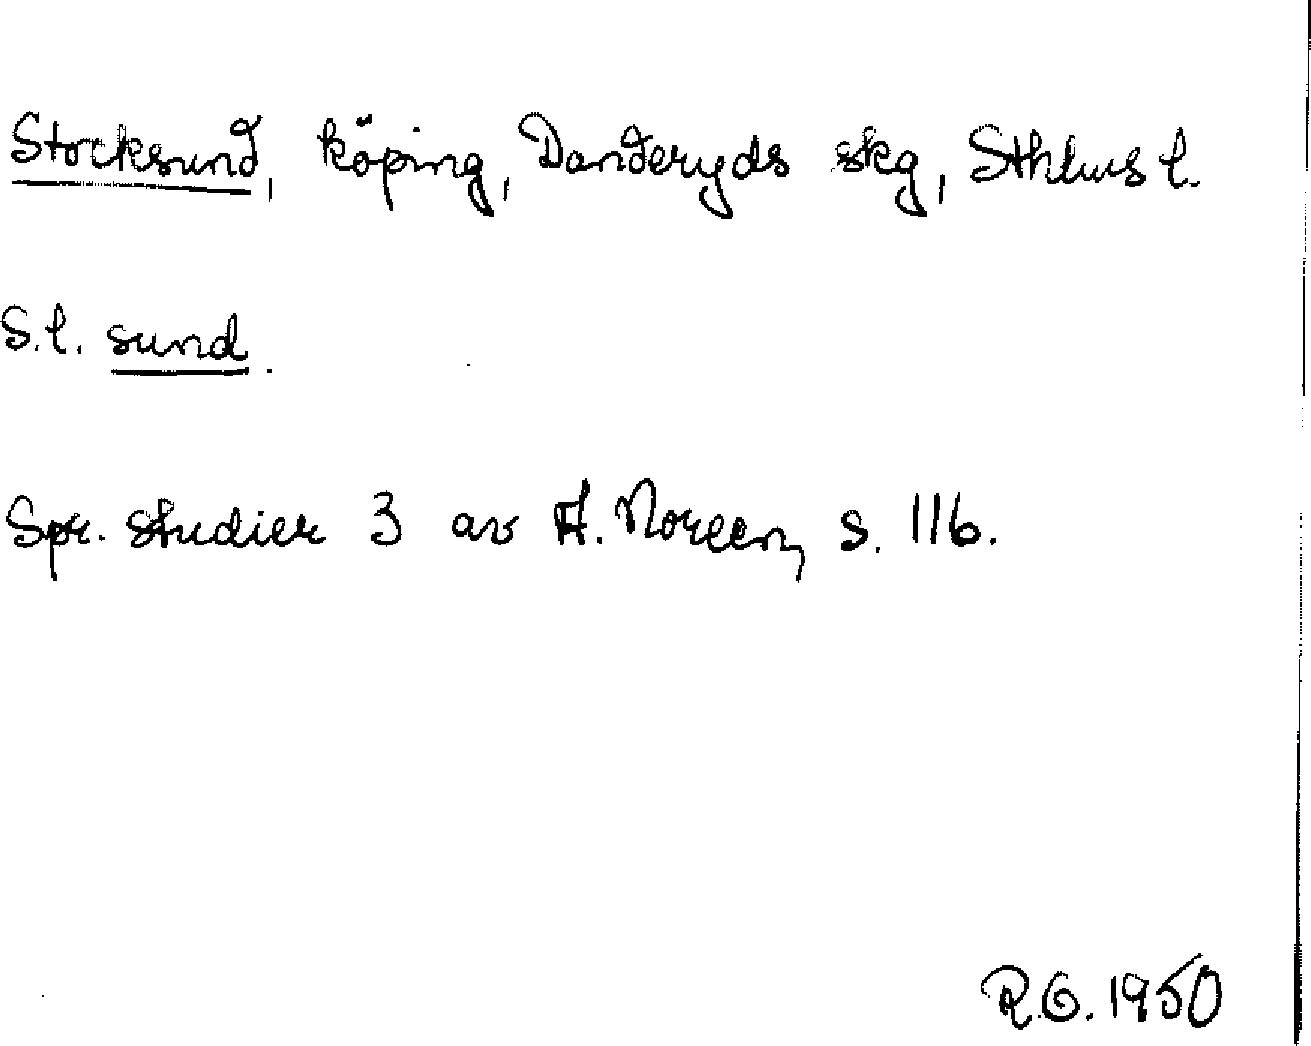 Stocksund, köping, Danderyds skg, Sthlms l.
S.l. sund.
Spr. studier 3 av A. Noreen, s. 116.
R.G. 1950